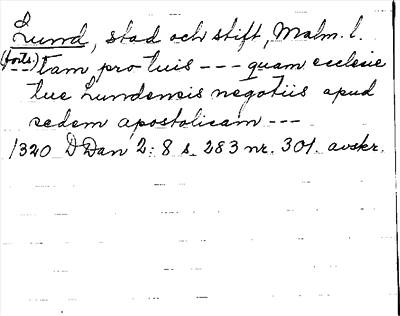 Lund, stad och stift, Malm. l.
(forts.) --- tam pro tuis --- quam ecclesie
tue Lundensis negotiis apud
sedem apostolicam ---
1320 DDan 2:8 s. 283 nr. 301. avskr.